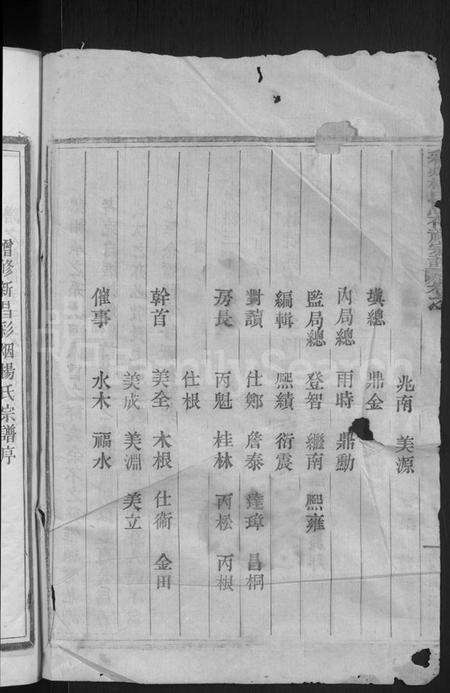 兆南 美源
總 鼎金
內局總 雨時 鼎勳
監局總 登智 繼南 熙雍
編輯 熙績 衍震
對讀 仕鄉 詹泰 達璋 昌桐
房長 丙魁 桂林 丙松 丙根
仕根
幹首 美全 木根 仕衛 金田
美成 美淵 美立
催事 水木 福水
增修新昌彩烟楊氏宗譜序